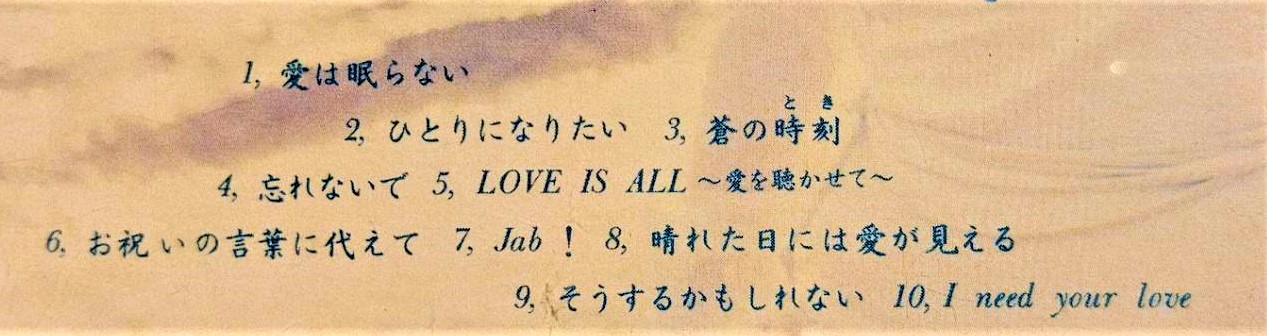 1, 愛は眠らない
とき
2, ひとりになりたい 3, 蒼の時刻
4, 忘れないで 5, LOVE IS ALL ～愛を聴かせて～
6, お祝いの言葉に代えて 7, Jab ! 8, 晴れた日には愛が見える
9, そうするかもしれない 10, I need your love